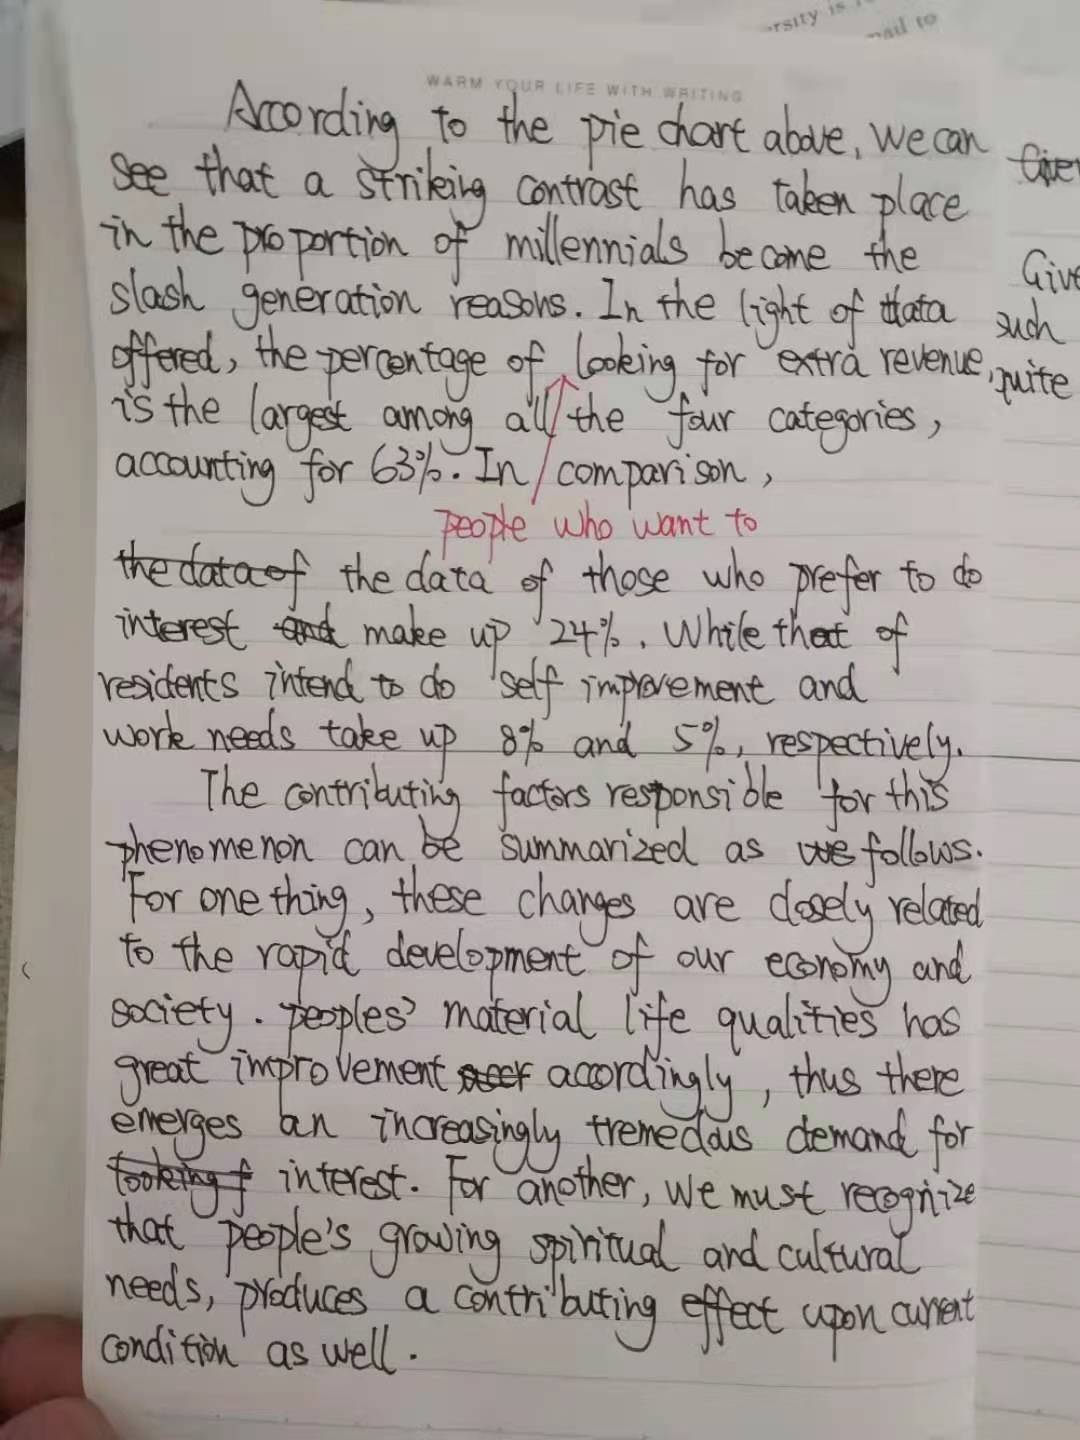 ersity is
mail to
WARM YOUR LIFE WITH WRITING
According to the pie chart above, we can
see that a striking contrast has taken place
in the proportion of millennials become the
slash generation reasons. In the light of data
offered, the percentage of looking for extra revenue,
is the largest among all the four categories,
accounting for 63%. In comparison,
people who want to
the data of the data of those who prefer to do
interest and make up 24%. While that of
residents intend to do self improvement and
work needs take up 8% and 5%, respectively.
The contributing factors responsible for this
phenomenon can be summarized as we follows.
For one thing, these changes are closely related
to the rapid development of our economy and
society. peoples' material life qualities has
great improvement accordingly, thus there
emerges an increasingly tremedous demand for
looking f interest. For another, we must recognize
that people's growing spiritual and cultural
needs, produces a contributing effect upon current
condition as well.
Give
such
quite